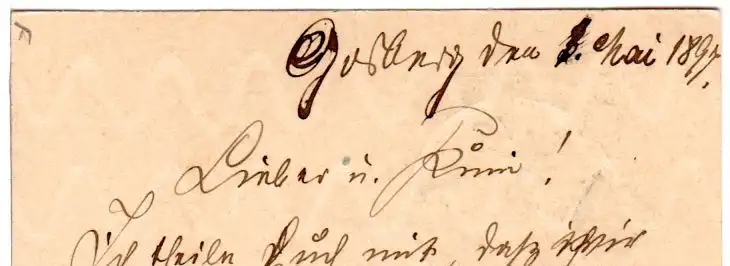 Gosberg den 3. Mai 1897.
Lieber u. Kuni!
Ich theile Euch mit, dasz wir